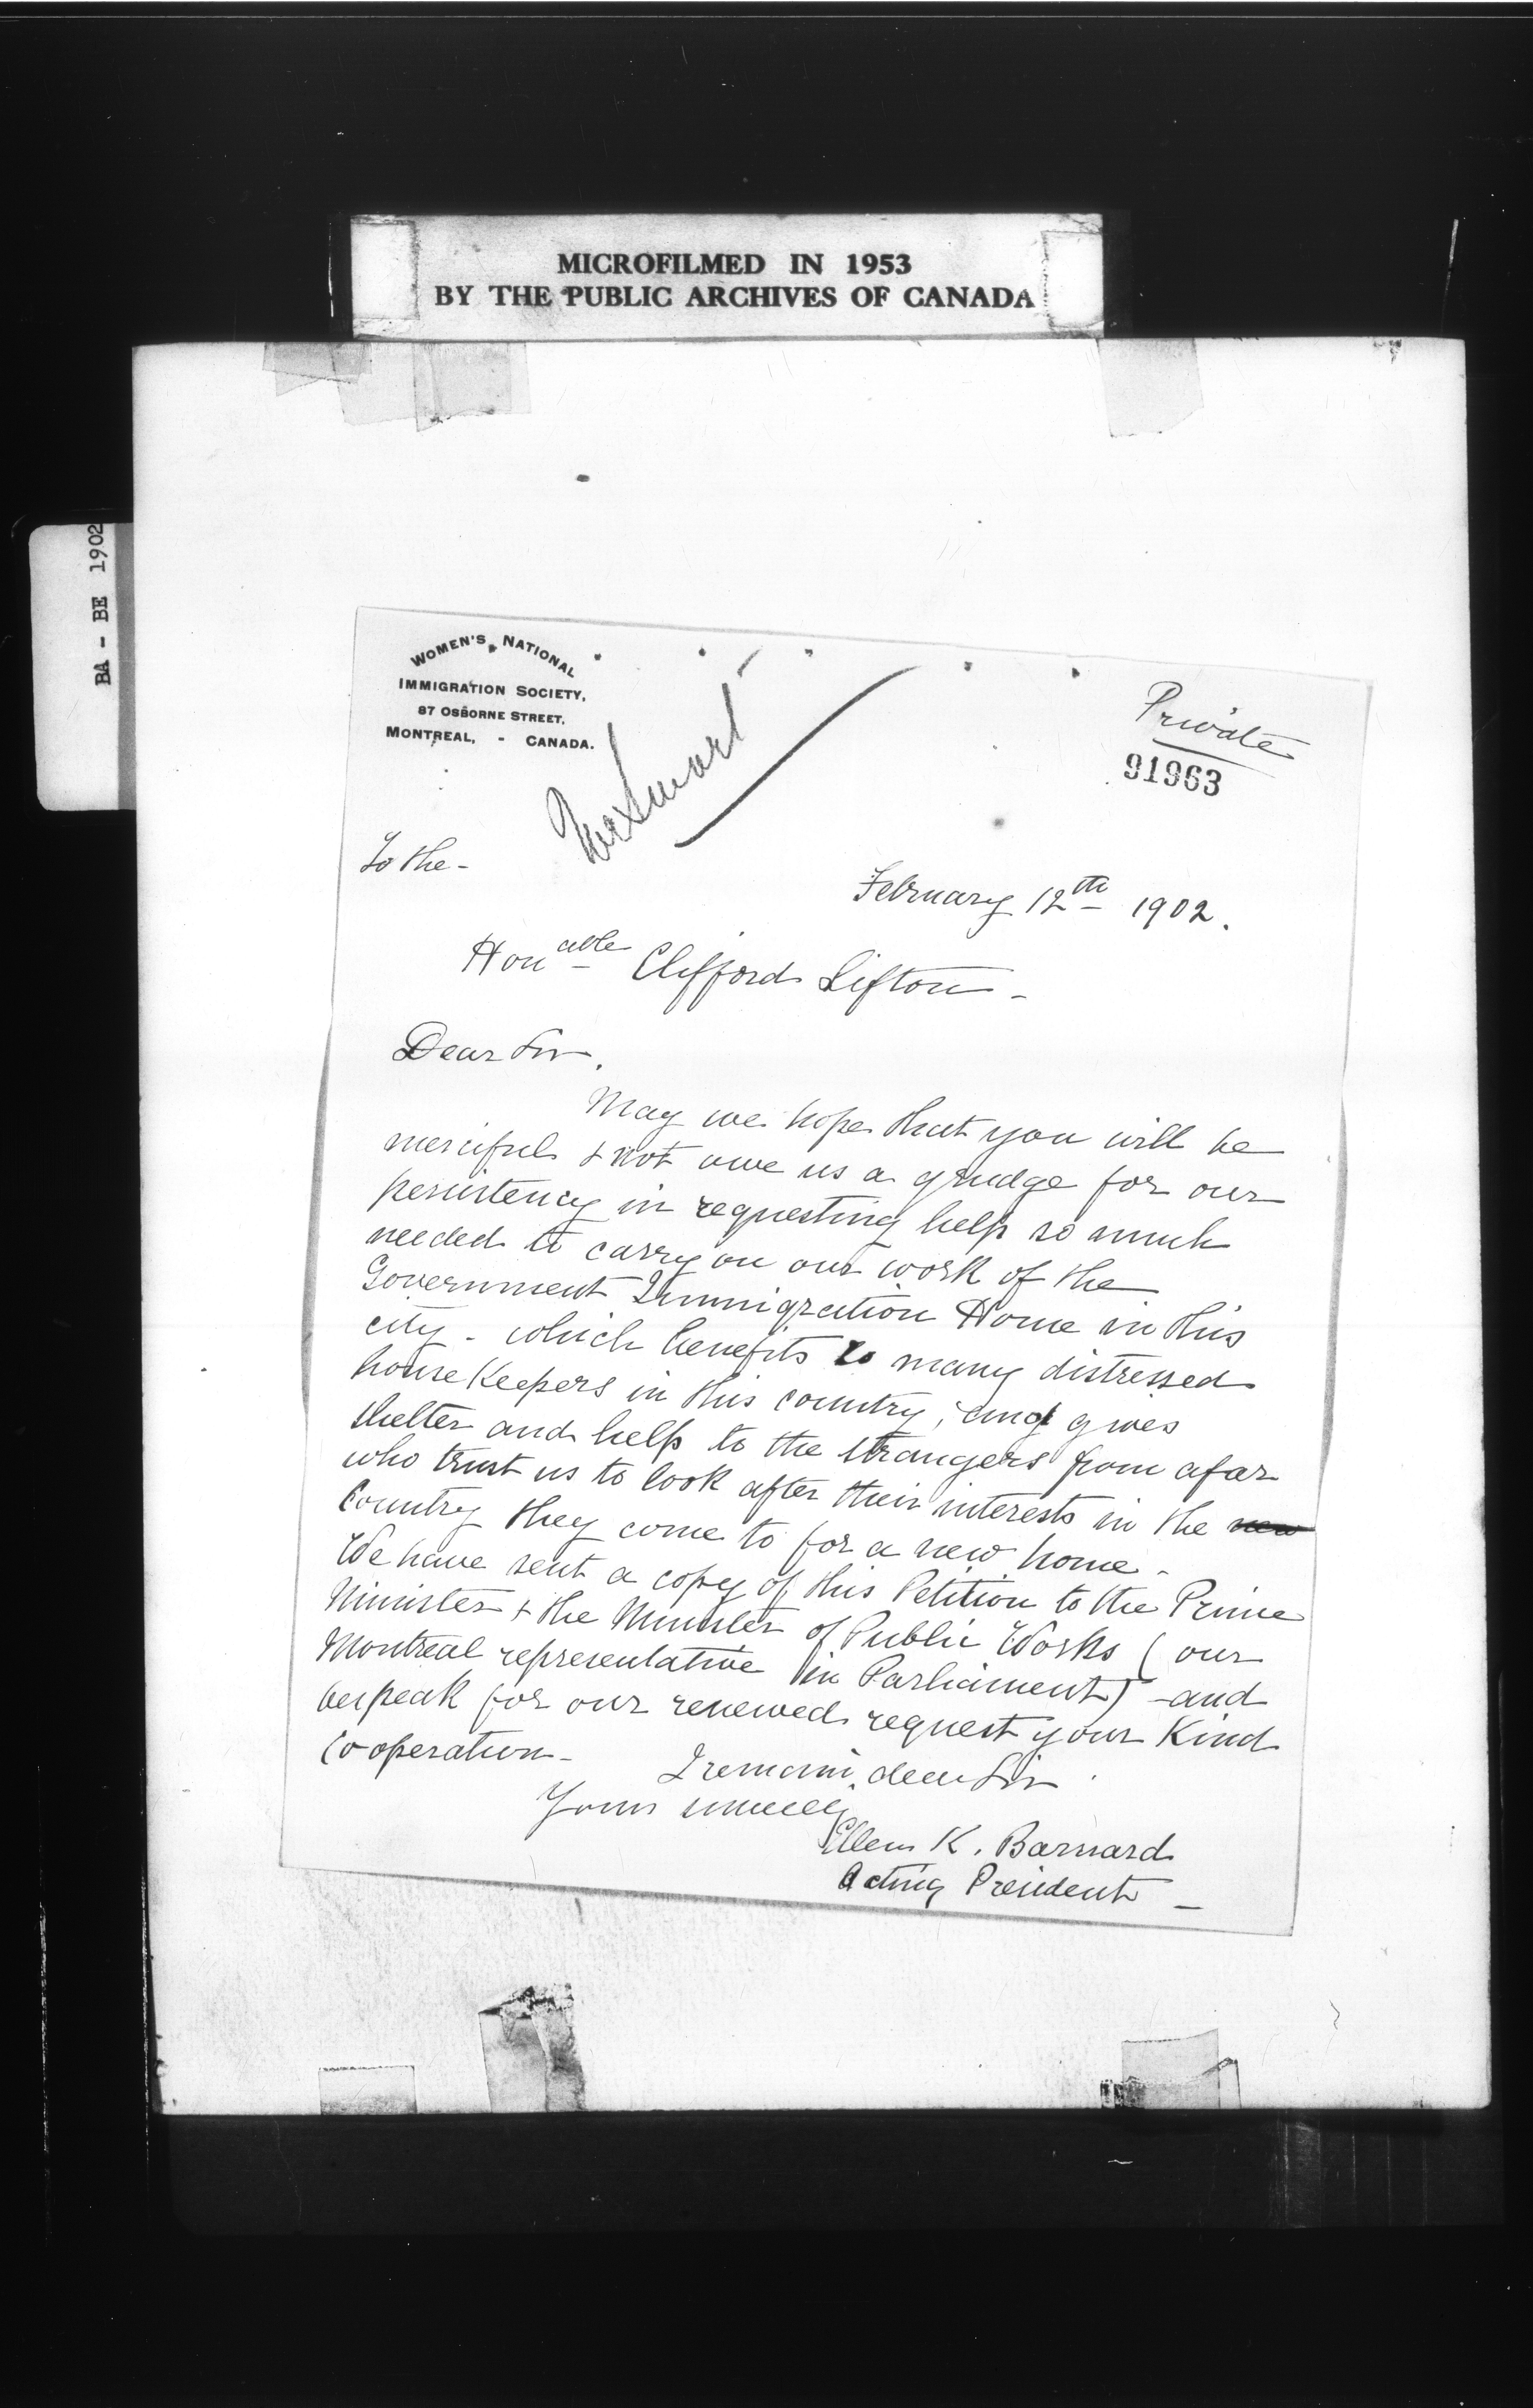 MICROFILMED IN 1953
BY THE PUBLIC ARCHIVES OF CANADA
BA - BE 1902
WOMEN'S NATIONAL
IMMIGRATION SOCIETY,
87 OSBORNE STREET,
MONTREAL, - CANADA.
Mr Smart
Private
91963
To the -
February 12th 1902.
Honable Clifford Sifton -
Dear Sir,
May we hope that you will be
merciful & not owe us a grudge for our
persistency in requesting help so much
needed to carry on our work of the
Government Immigration Home in this
city - which benefits so many distressed
house Keepers in this country, and gives
shelter and help to the strangers from afar
who trust us to look after their interests in the new
Country they come to for a new home -
We have sent a copy of this Petition to the Prime
Minister & the Minister of Public Works (our
Montreal representative in Parliament) - and
bespeak for our renewed request your Kind
Cooperation -
I remain, dear Sir
Yours sincerely
Ellen K. Barnard
Acting President -